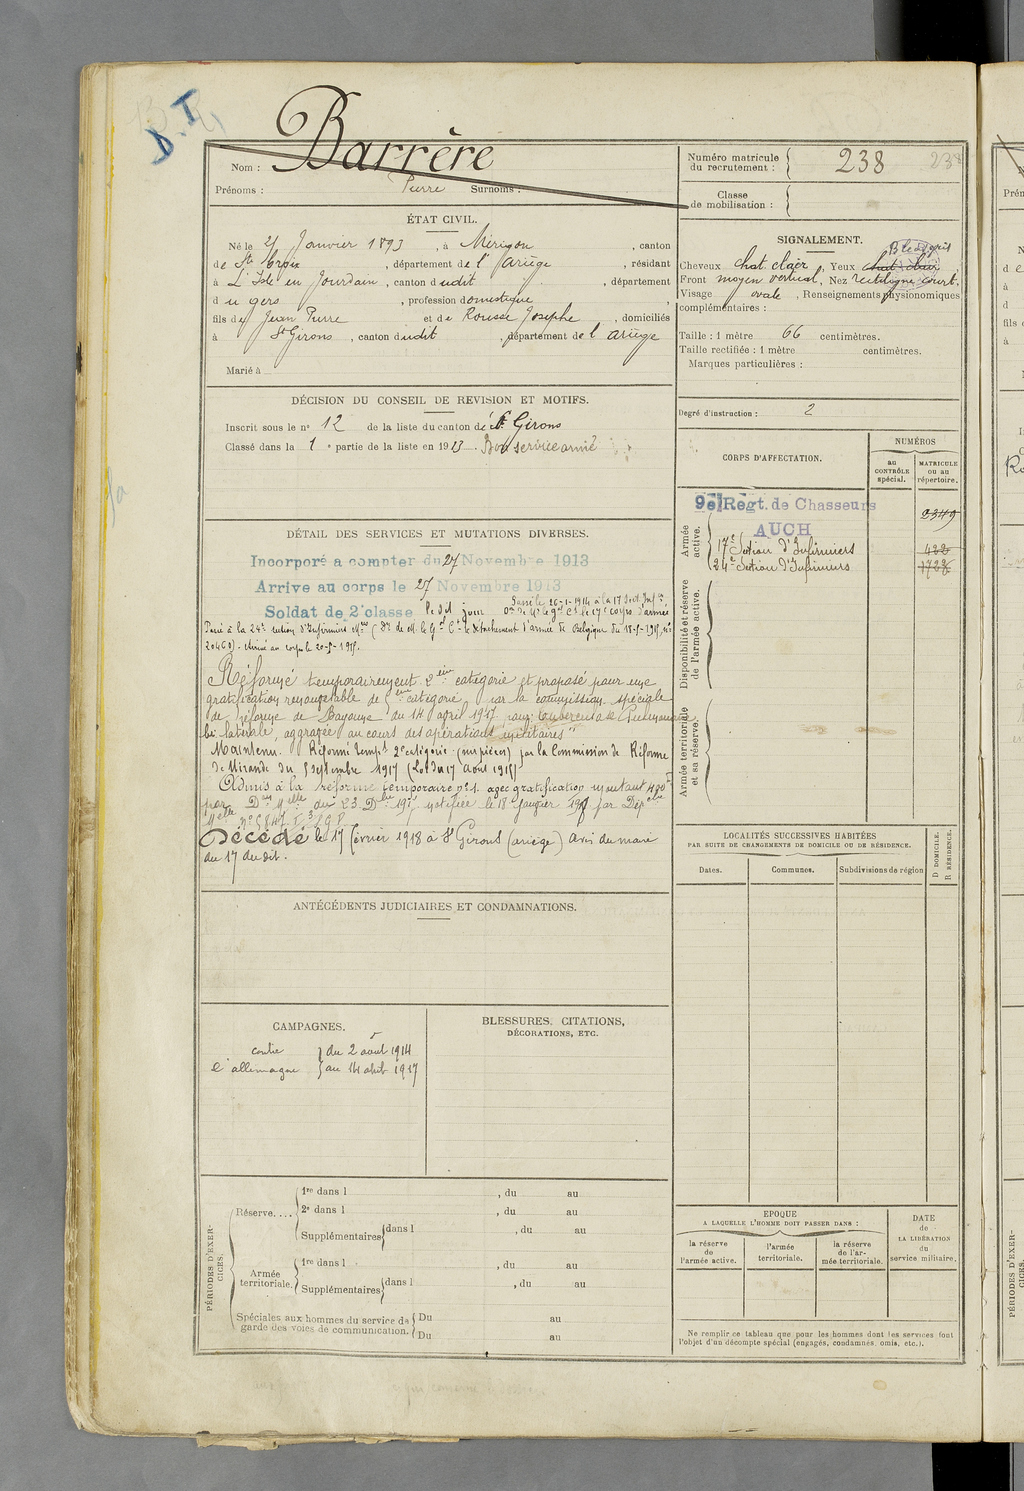 D.I.
Barrère
Nom :
Prénoms : Pierre Surnoms :
Numéro matricule
du recrutement : 238 238
Classe
de mobilisation :
ÉTAT CIVIL.
Né le 21 Janvier 1893, à Mérigon, canton
de Ste Croix, département de l'Ariège, résidant
à L'Isle en Jourdain, canton dudit, département
du gers, profession domestique,
fils de Jean Pierre et de Rousse Josephe, domiciliés
à St Girons, canton dudit, département de l'ariège
Marié à
SIGNALEMENT.
Bleu gris
Cheveux chat. clair, Yeux chat. clair
Front moyen vertical, Nez rectiligne court.
Visage ovale, Renseignements physionomiques
complémentaires :
Taille : 1 mètre 66 centimètres.
Taille rectifiée : 1 mètre centimètres.
Marques particulières :
Degré d'instruction : 2
DÉCISION DU CONSEIL DE REVISION ET MOTIFS.
Inscrit sous le n° 12 de la liste du canton de St Girons
Classé dans la 1e partie de la liste en 1913. Bon service armé
CORPS D'AFFECTATION.
NUMÉROS
au
CONTRÔLE
spécial.
MATRICULE
ou au
répertoire.
Armée
active.
9e Régt. de Chasseurs
AUCH
17e Section d'Infirmiers 422
24e Section d'Infirmiers 1728
Disponibilité et réserve
de l'armée active.
Armée territoriale
et sa réserve.
DÉTAIL DES SERVICES ET MUTATIONS DIVERSES.
Incorporé a compter du 27 Novembre 1913
Arrive au corps le 27 Novembre 1913
Soldat de 2e classe le dit jour Passé le 26-1-1914 à la 17 Sect. Infres
On de Mr le gal Ct le 17e corps d'armée
Passé à la 24e section d'Infirmiers Mres (Or de M. le Gal Ct le détachement d'armée de Belgique du 18-5-1915, no
20460). Arrivé au corps le 20-5-1915.
Réformé temporairement 2ème catégorie et proposé pour une
gratification renouvelable de 5ème catégorie par la commission spéciale
de réforme de Bayonne du 14 avril 1917 pour: tuberculose Pulmonaire
bi latérale, aggravée au cours des opérations militaires"
Maintenu. Réformé tempre 2e catégorie (sur pièces) par la Commission de Réforme
de Mirande du 5 septembre 1917 (Loi du 17 Août 1915)
Admis à la réforme temporaire n°1. avec gratification montant 400f
par Don Melle du 23 Dbre 1917 notifiée le 18 Janvier 1918 par Dépche
Melle n°
Décédé le 17 février 1918 à St Girons (ariège) Avis du maire
du 17 dudit.
LOCALITÉS SUCCESSIVES HABITÉES
PAR SUITE DE CHANGEMENTS DE DOMICILE OU DE RÉSIDENCE.
Dates.
Communes.
Subdivisions de région
D DOMICILE.
R RÉSIDENCE.
ANTÉCÉDENTS JUDICIAIRES ET CONDAMNATIONS.
CAMPAGNES.
contre } du 2 août 1914
l'allemagne } au 14 avril 1917
BLESSURES, CITATIONS,
DÉCORATIONS, ETC.
PÉRIODES D'EXER-
CICES.
Réserve....
1re dans l , du au
2e dans l , du au
Supplémentaires dans l , du au
Armée
territoriale.
1re dans l , du au
Supplémentaires dans l , du au
Spéciales aux hommes du service de
garde des voies de communication.
Du au
Du au
EPOQUE
A LAQUELLE L'HOMME DOIT PASSER DANS :
la réserve
de
l'armée active.
l'armée
territoriale.
la réserve
de l'ar-
mée territoriale.
DATE
de
LA LIBÉRATION
du
service militaire.
Ne remplir ce tableau que pour les hommes dont les services font
l'objet d'un décompte spécial (engagés, condamnés, omis, etc.).